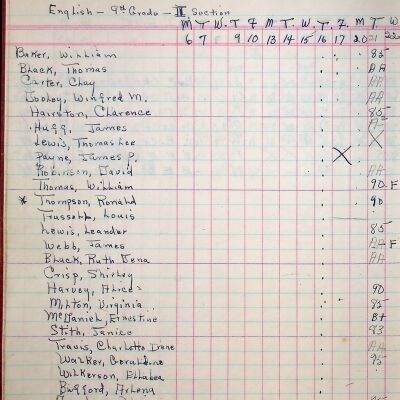 English - 9th Grade - II Section
M T W. T F M T. W. T. F. M T W
6 7 8 9 10 13 14 15 16 17 20 21 22
Baker, William 85
Black, Thomas AA
Carter, Clay AA
Dooley, Winfred M. AA
Hairston, Clarence 85
Hugg, James A-
Lewis, Thomas Lee X
Payne, James P. X
Robinson, David AA
Thomas, William 90 F
* Thompson, Ronald 90
Trussell, Louis
Lewis, Leander 85
Webb, James AA F
Black, Ruth Jena AA
Crisp, Shirley
Harvey, Alice 90
Milton, Virginia 85
McDaniel, Ernestine B+
Stith, Janice 83
Travis, Charlotte Irene AA
Walker, Geraldine 95
Wilkerson, Ellabea
Binford, Arlena